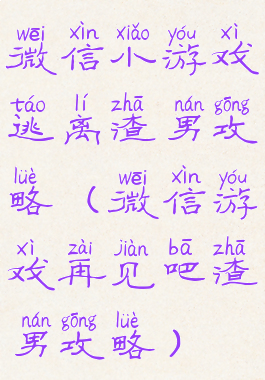 wēi xìn xiǎo yóu xì
微信小游戏
táo lí zhā nán gōng
逃离渣男攻
lüè wēi xìn yóu
略（微信游
xì zài jiàn bā zhā
戏再见吧渣
nán gōng lüè
男攻略）